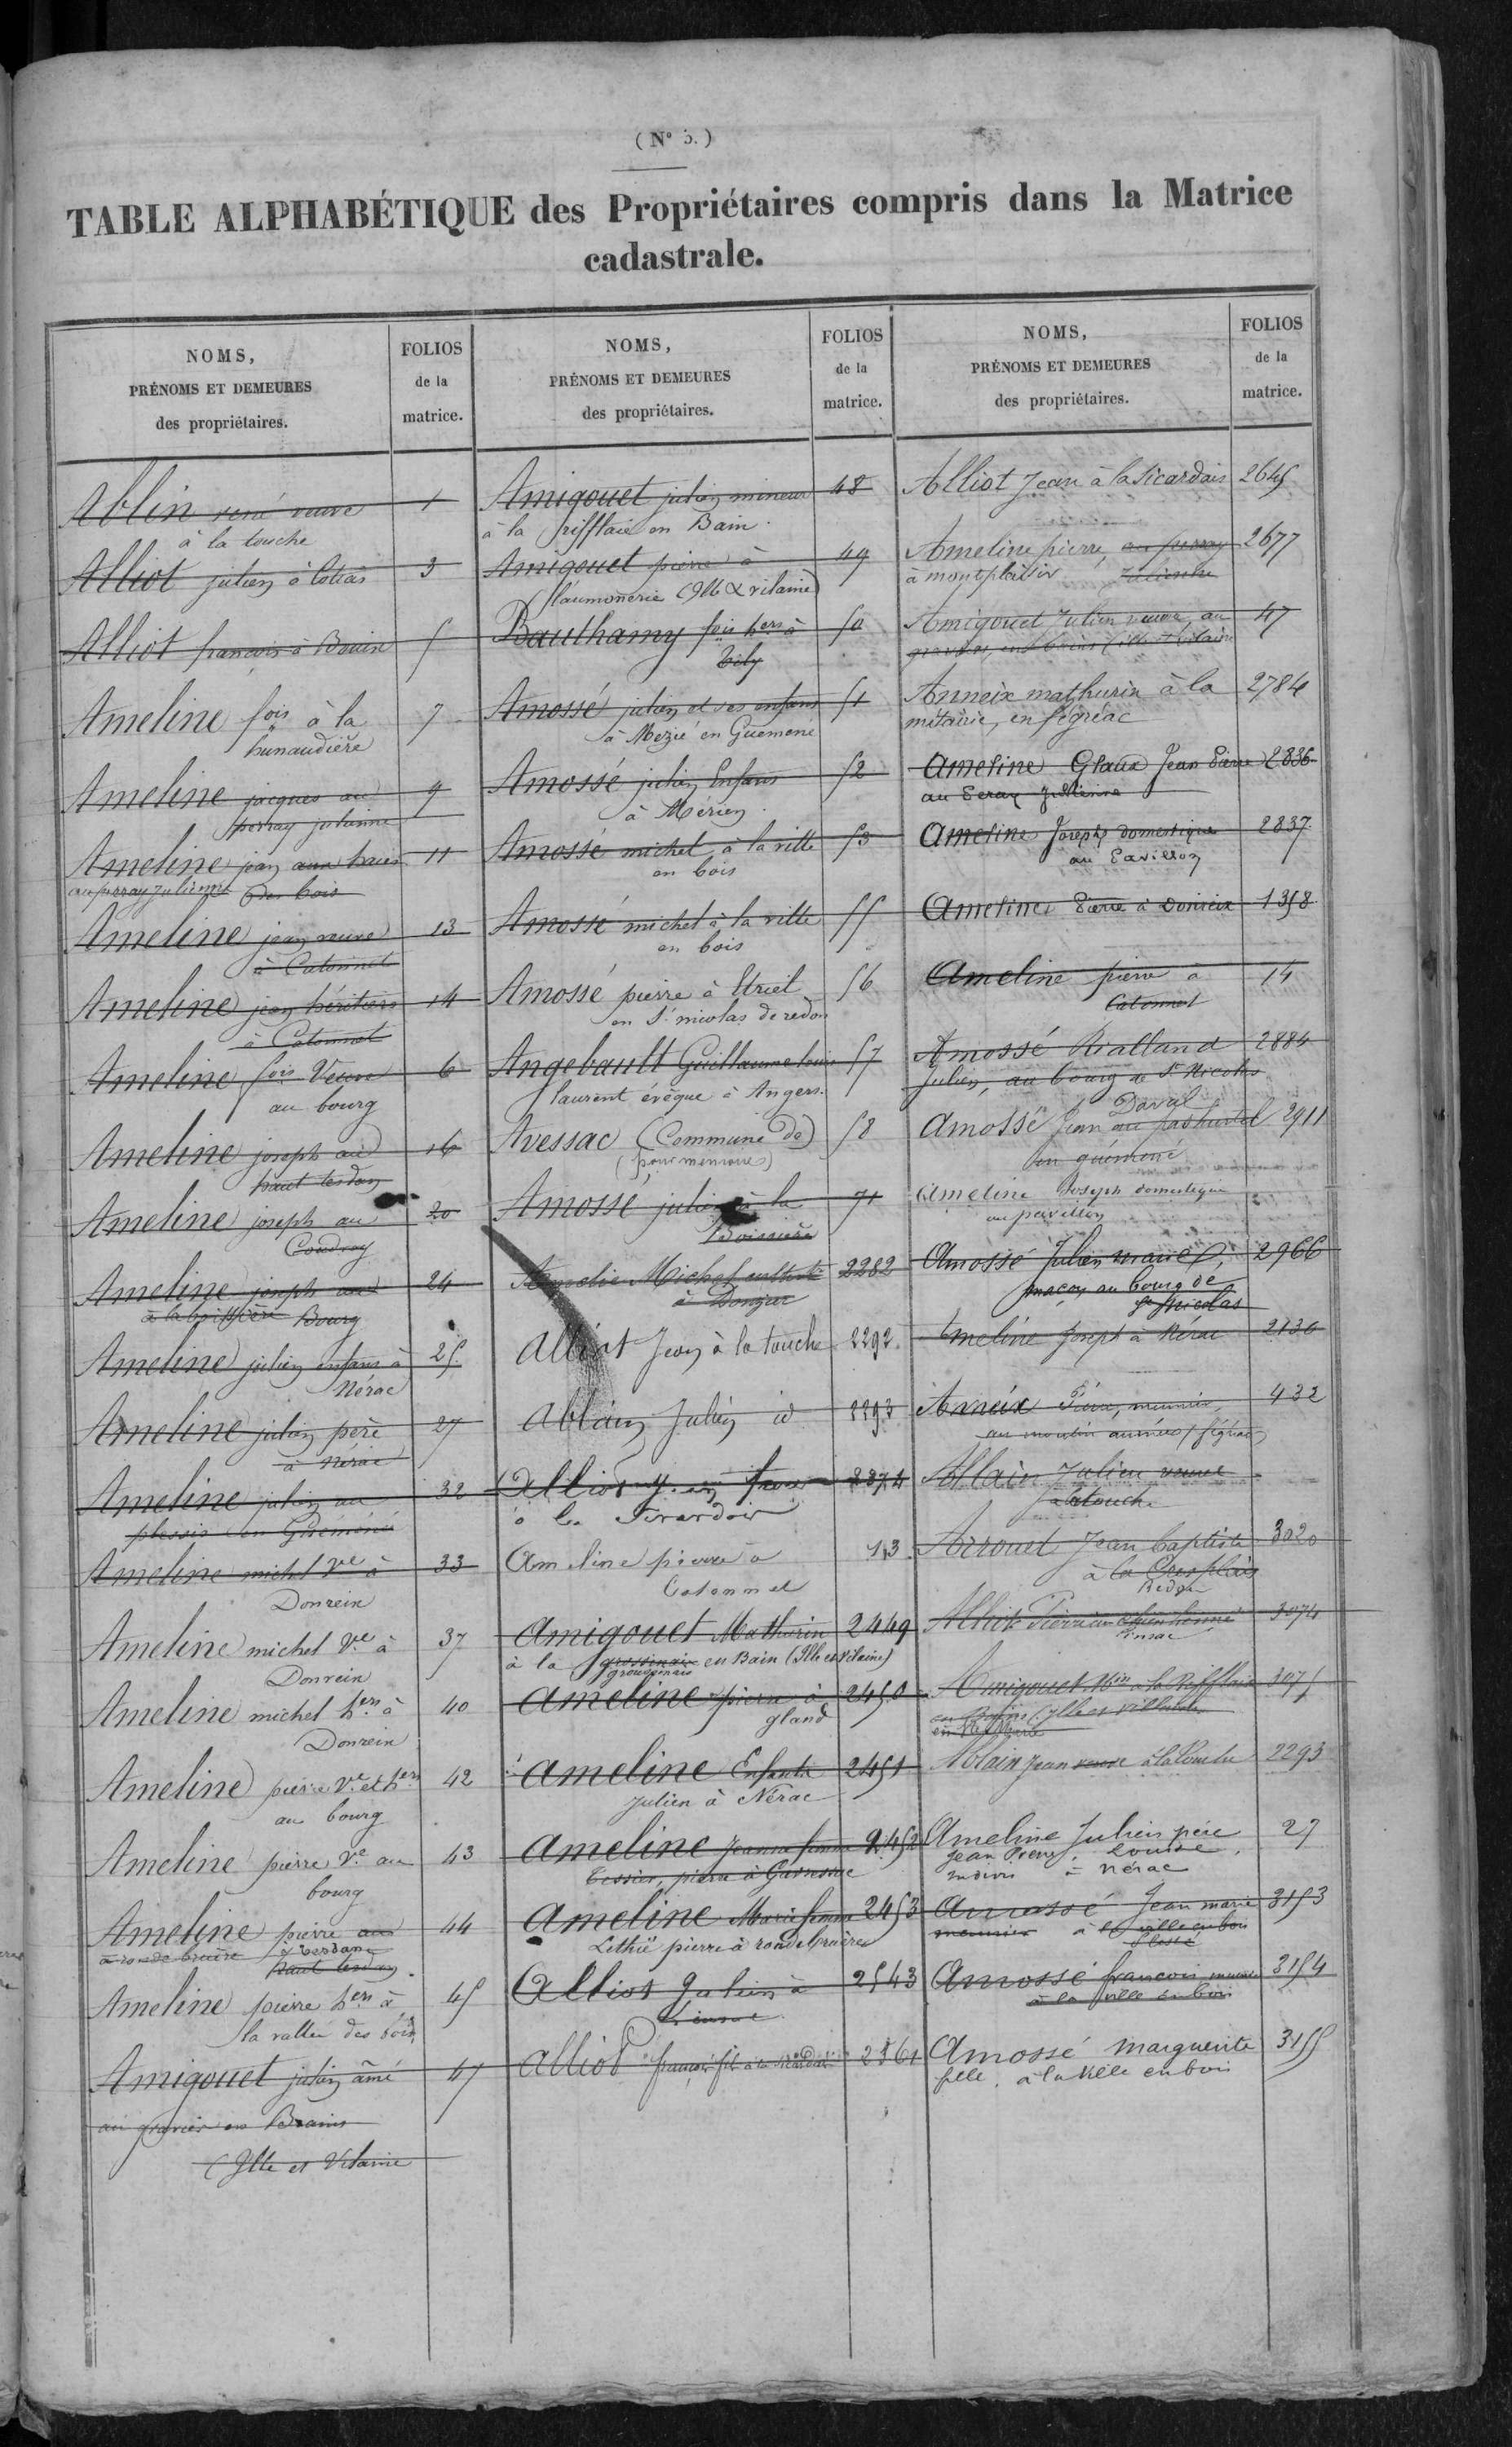 (Nº 5.)
TABLE ALPHABÉTIQUE des Propriétaires compris dans la Matrice
cadastrale.
NOMS,
PRÉNOMS ET DEMEURES
des propriétaires.
FOLIOS
de la
matrice.
Ablin rené veuve 1
à la touche
Alliot julien à 3
Alliot françois à Bouin 5
Ameline fois à la 7
hunaudière
Ameline jacques au 9
perray julienne
Ameline jean aux haies 11
au perray julienne des bois
Ameline jean veuve 13
à Catonnet
Ameline jean héritiers 14
à Catonnet
Ameline fois Veuve 6
au bourg
Ameline joseph au 16
haut terdan
Ameline joseph au 20
Coudray
Ameline joseph au 24
à la boissière Bourg
Ameline julien enfans à 25
Nérac
Ameline julien père 27
à Nérac
Ameline julien au 32
plessis en Guéméné
Ameline michel Ve à 33
Donrein
Ameline michel Ve à 37
Donrein
Ameline michel hers à 40
Donrein
Ameline pierre Ve et hers 42
au bourg
Ameline pierre Ve au 43
bourg
Ameline pierre au 44
à ronde bruère
haut terdan
Ameline pierre hers à 45
la vallée des bois
Amigouet julien âiné 47
au gravier en Brains
(Ille et Vilaine
NOMS,
PRÉNOMS ET DEMEURES
des propriétaires.
FOLIOS
de la
matrice.
Amigouet julien mineur 48
à la rifflaie en Bain.
Amigouet pierre à 49
l'aumonerie (Ille & vilaine)
Baulhamy fois hers à 50
Amossé julien et ses enfans 51
à Mezié en Guemené
Amossé julien Enfans 52
à Mérien
Amossé michel à la ville 53
en bois
Amossé michel à la ville 55
en bois
Amossé pierre à Etriel 56
en St nicolas de redon
Angebault Guillaume louis 57
laurent évêque à Angers.
Avessac (Commune de) 58
(pour mémoire)
Amossé julien à la 71
Boissière
Michel 2282
à
Alliot Jean à la touche 2292
Ablain Julien id 2293
Alliot 2374
à la
Ameline pierre à 13
Catonnet
Amigouet Mathurin 2449
à la en Bain (Ille et Vilaine)
Ameline pierre à 2450
gland
Ameline Enfants 2451
Julien à Nérac
Ameline Jeanne femme 2452
Tessier, pierre à
Ameline Marie femme 2453
Lethiê pierre à ronde bruère
Alliot Julien à 2543
Alliot françois fils à la 2561
NOMS,
PRÉNOMS ET DEMEURES
des propriétaires.
FOLIOS
de la
matrice.
Alliot Jean à la Sicardais 2645
Ameline pierre, au perray 2677
à montplaisir Julienne
Amigouet Julien veuve, au 47
Anneix mathurin à la 2784
métairie, en fégréac
Ameline Glaux Jean Pierre 2836
au Peray Julienne
Ameline Joseph domestique 2837
au Pavillon
Ameline Pierre à Donrein 1358
Ameline pierre à 14
Catonnet
Amossé Rialland 2884
Julien, au bourg de St Nicolas
Daval
Amossé Jean au 2911
en guémené
Ameline Joseph domestique
au pavillon
Amossé Julien marié 2966
maçon au bourg de
St Nicolas
Ameline Joseph à Nérac 2136
Anneix Pierre, meunier, 432
au moulin
Allain Julien veuve
à la touche
Arrouet Jean baptiste 3020
à la
Redon
Alliot Pierre 3074
Amigouet à la Rifflais 3075
Ablain Jean veuve à la touche 2293
Ameline Julien père 27
Jean Pierre, Louise,
indivis à Nérac
Amossé Jean marie 3153
meunier à la ville en bois
Plessé
Amossé françois 3154
à la ville en bois
Amossé Marguerite 3155
fille, à la Ville en bois